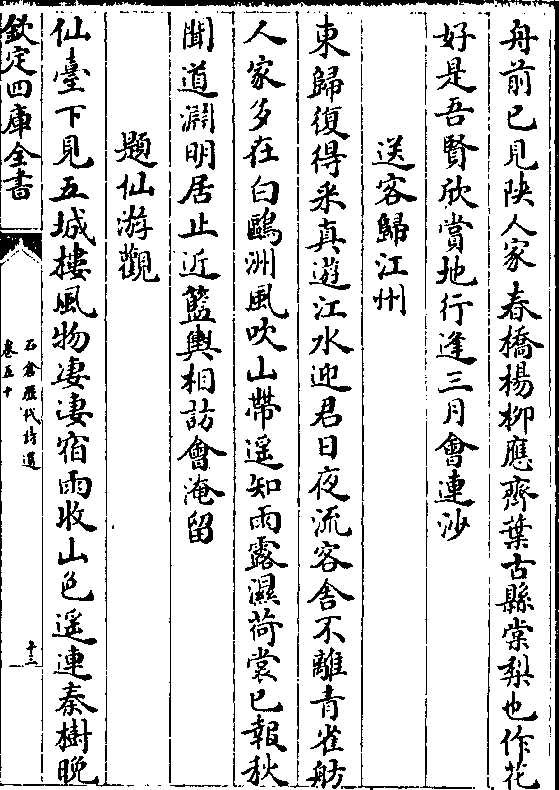 舟前已見陜人家春橋楊柳應齊葉古縣棠梨也作花
好是吾賢欣賞地行逢三月會連沙
送客歸江州
東歸復得采真遊江水迎君日夜流客舍不離青雀舫
人家多在白鷗洲風吹山帶遥知雨露濕荷裳已報秋
聞道淵明居止近籃輿相訪會淹留
題仙游觀
仙臺下見五城樓風物凄凄宿雨收山色遥連秦樹晚
欽定四庫全書
石倉歷代詩選
卷五十
十三